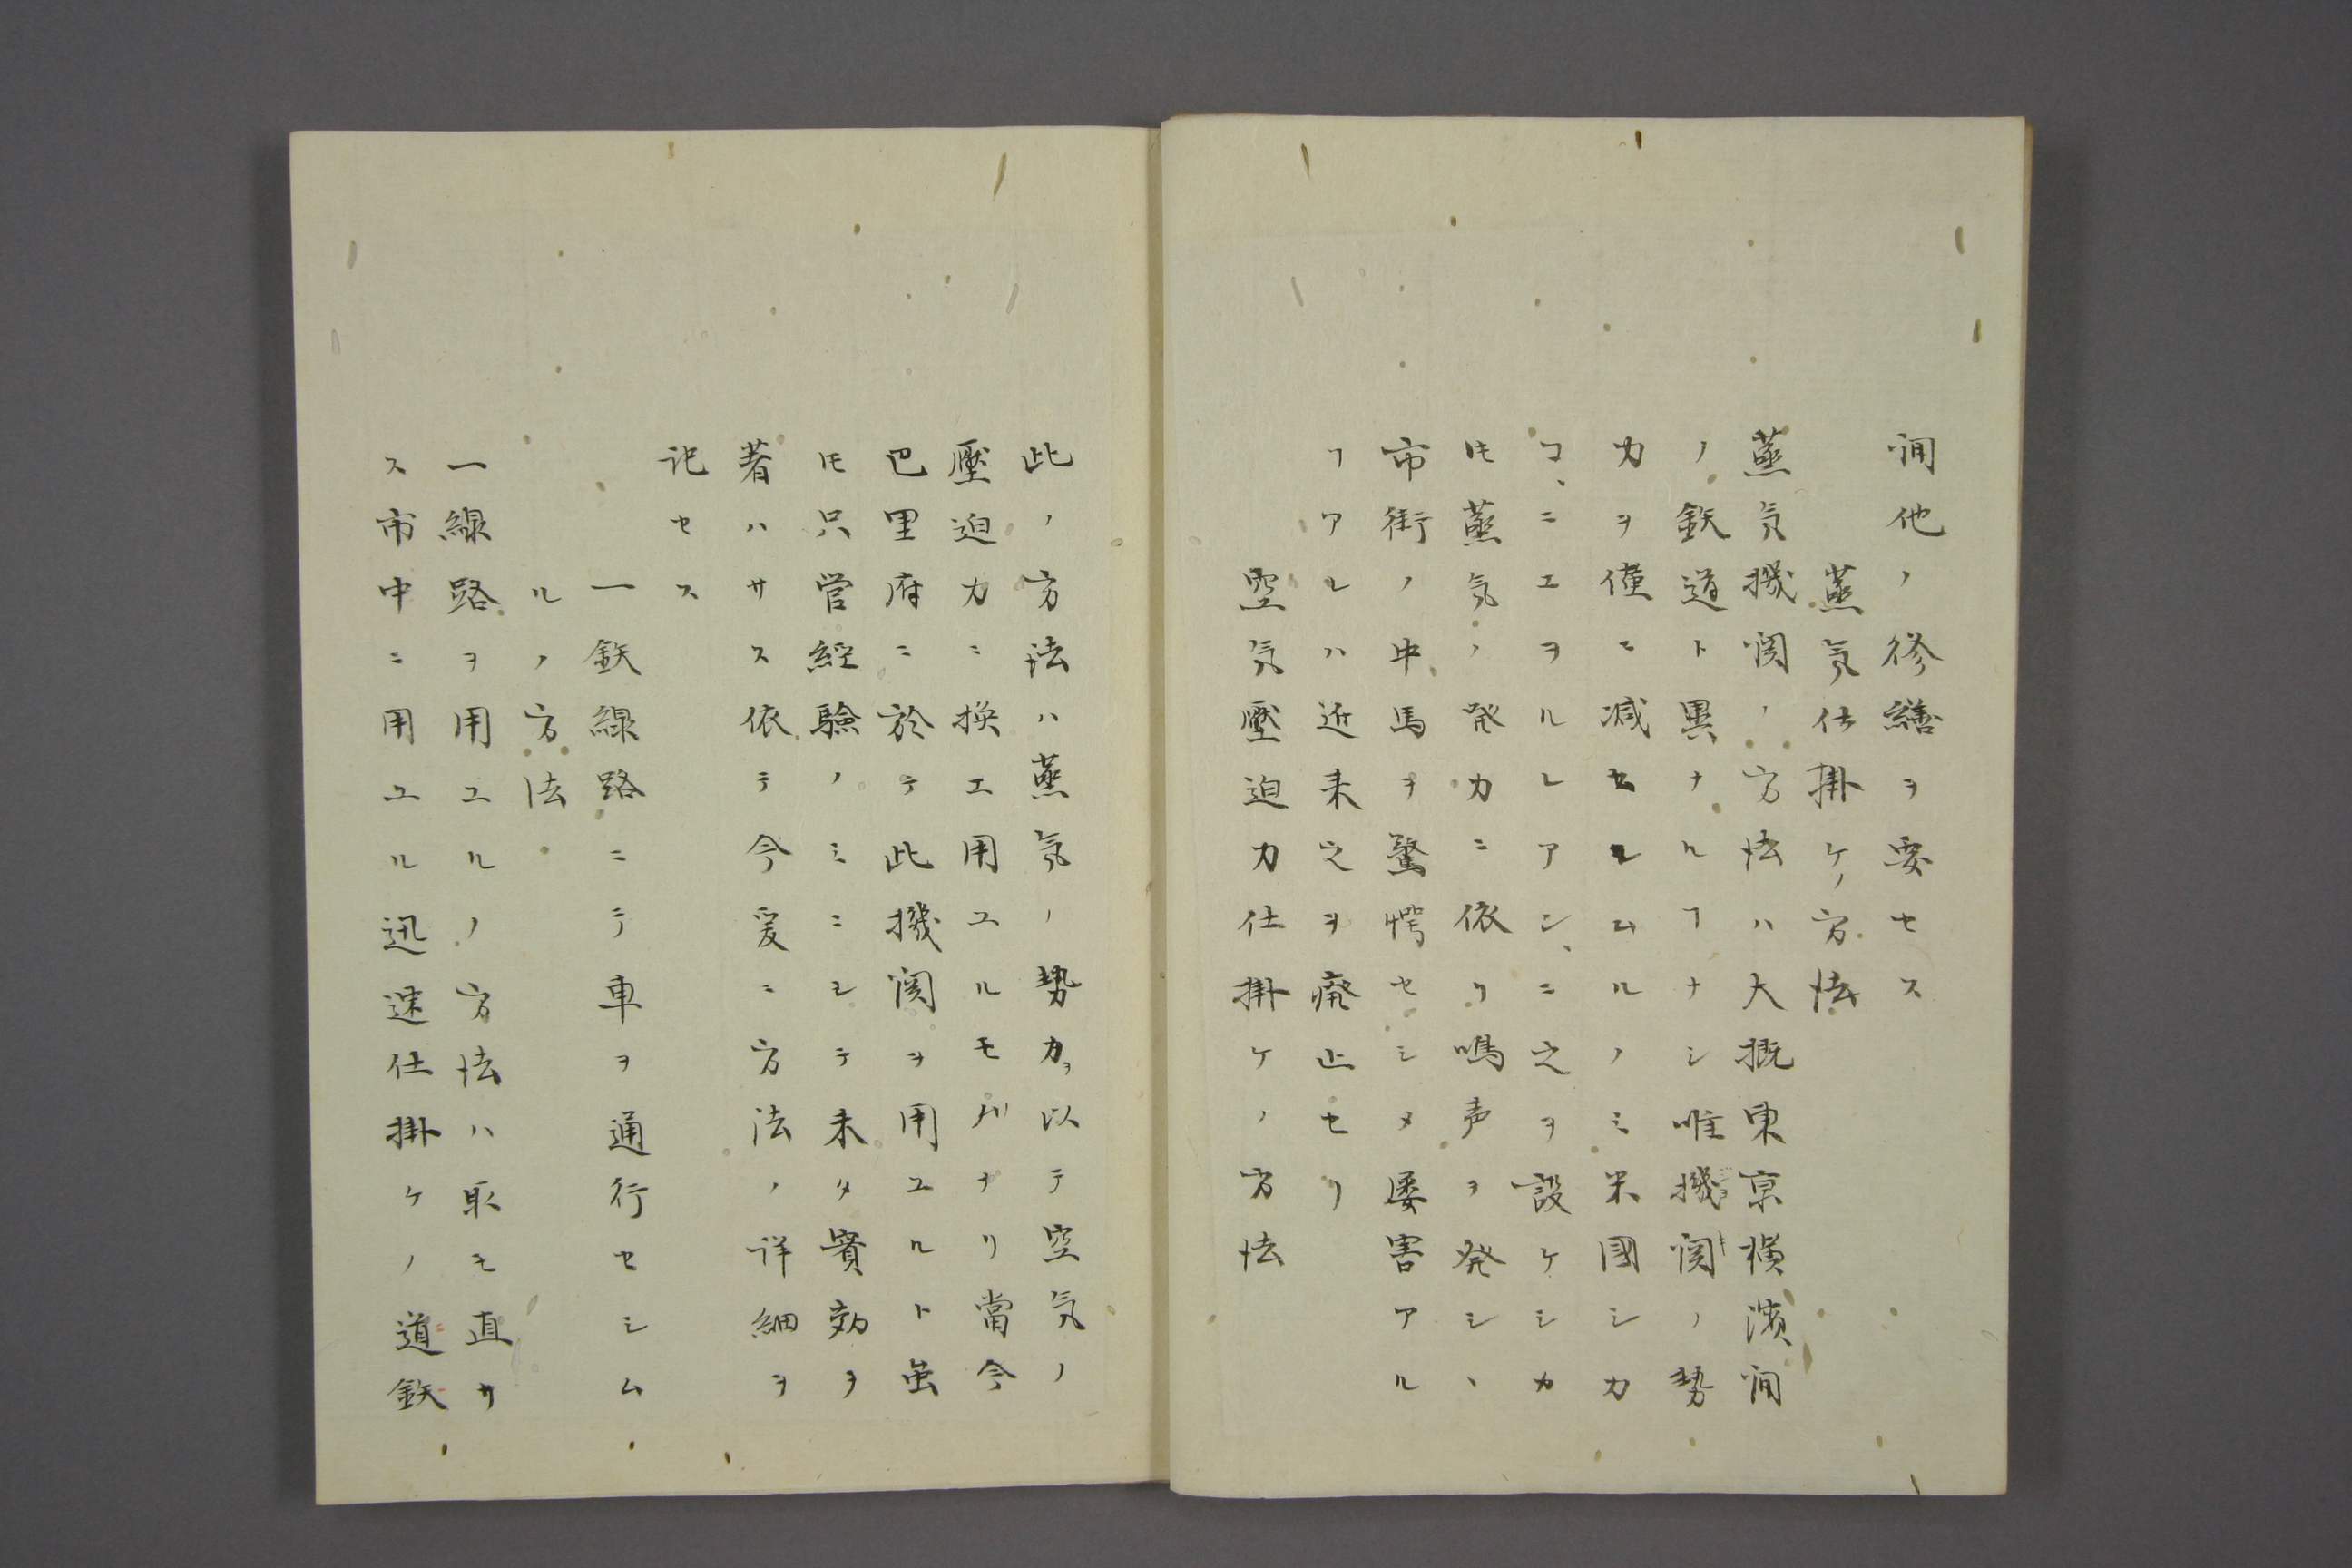 間他ノ修繕ヲ要セス
蒸気仕掛ケノ方法
蒸気機関ノ方法ハ大概東京横濱間
ノ鉄道ト異ナルヿナシ唯機関ノ勢
力ヲ僅ニ减セシムルノミ米國シカ
コヽニエヲルレアンヽニ之ヲ設ケシカ
𪜈蒸気ノ発力ニ依リ鳴声ヲ発シヽ
市街ノ中馬ヲ驚愕セシメ屡害アル
ヿアレハ近来之ヲ廃止セリ
空気壓迫力仕掛ケノ方法
此ノ方法ハ蒸気ノ勢力ヲ以テ空気ノ
壓迫力ニ換エ用ユルモノナリ當今
巴里府ニ於テ此機関ヲ用ユルト虽
𪜈只管経驗ノミニシテ未タ實効ヲ
著ハサス依テ今爰ニ方法ノ详細ヲ
记セス
一鉄線路ニテ車ヲ通行セシム
ルノ方法
一線路ヲ用ユルノ方法ハ取モ直サ
ス市中ニ用ユル迅速仕掛ケノ道鉄